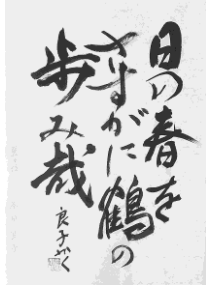 日の春を
さすがに鶴の
歩み哉
良子かく